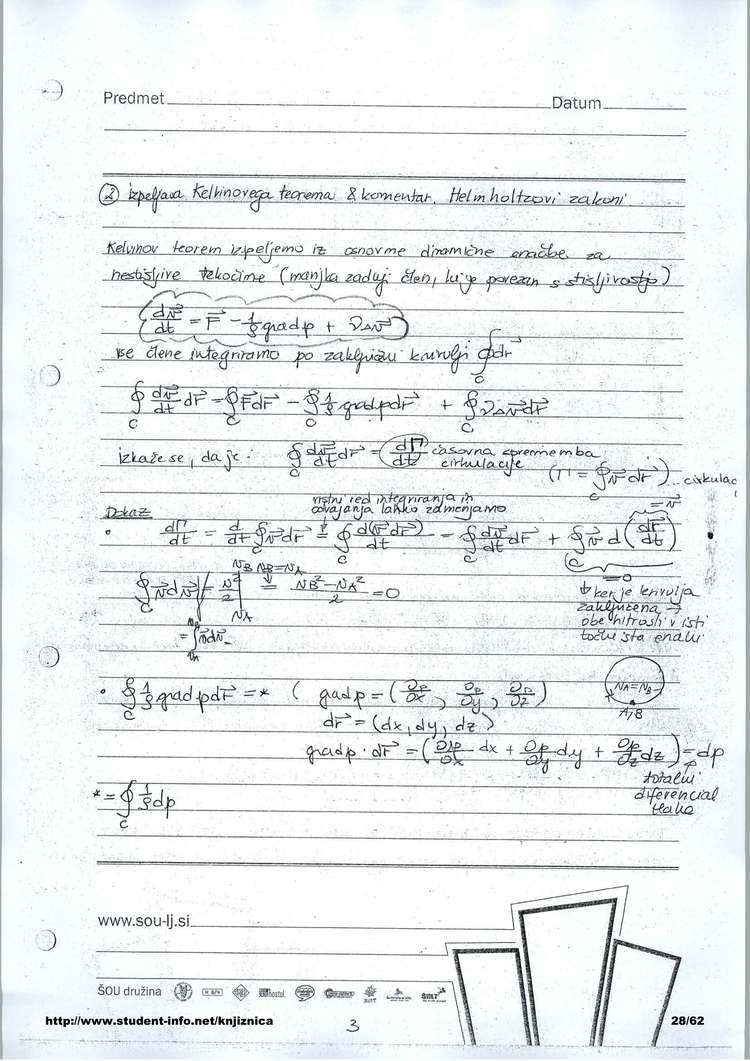 Predmet Datum
② Izpeljava Kelvinovega teorema & komentar, Helmholtzovi zakoni
Kelvinov teorem izpeljemo iz osnovne dinamične enačbe za
nestisljive tekočine (manjka zadnji člen, ki je povezan s stisljivostjo)
dv⃗/dt = F⃗ - 1/ρ grad p + νΔv⃗
vse člene integriramo po zaključeni krivulji ∮_C dr⃗
∮_C dv⃗/dt dr⃗ = ∮_C F⃗dr⃗ - ∮_C 1/ρ gradp dr⃗ + ∮_C νΔv⃗dr⃗
izkaže se, da je: ∮_C dv⃗/dt dr⃗ = dΓ/dt časovna sprememba
cirkulacije (Γ = ∮_C v⃗ dr⃗)... cirkulac
Dokaz vrstni red integriranja in
odvajanja lahko zamenjamo = v⃗
• dΓ/dt = d/dt ∮_C v⃗dr⃗ = ∮_C d(v⃗dr⃗)/dt = ∮_C dv⃗/dt dr⃗ + ∮_C v⃗ d(dr⃗/dt)
=0
∮_C v⃗dv⃗ = v²/2 |_{v_A}^{v_B} = (v_B² - v_A²)/2 = 0
v_B = v_A
= ∫_{v_A}^{v_B} v⃗dv⃗
↓ ker je krivulja
zaključena →
obe hitrosti v isti
točki sta enaki
v_A = v_B
A,B
• ∮_C 1/ρ grad p dr⃗ = * ( gadp = (∂p/∂x, ∂p/∂y, ∂p/∂z)
dr⃗ = (dx, dy, dz)
gradp · dr⃗ = (∂p/∂x dx + ∂p/∂y dy + ∂p/∂z dz) = dp
totalni
diferencial
tlaka
* = ∮_C 1/ρ dp
www.sou-lj.si
ŠOU družina
http://www.student-info.net/knjiznica 3 28/62